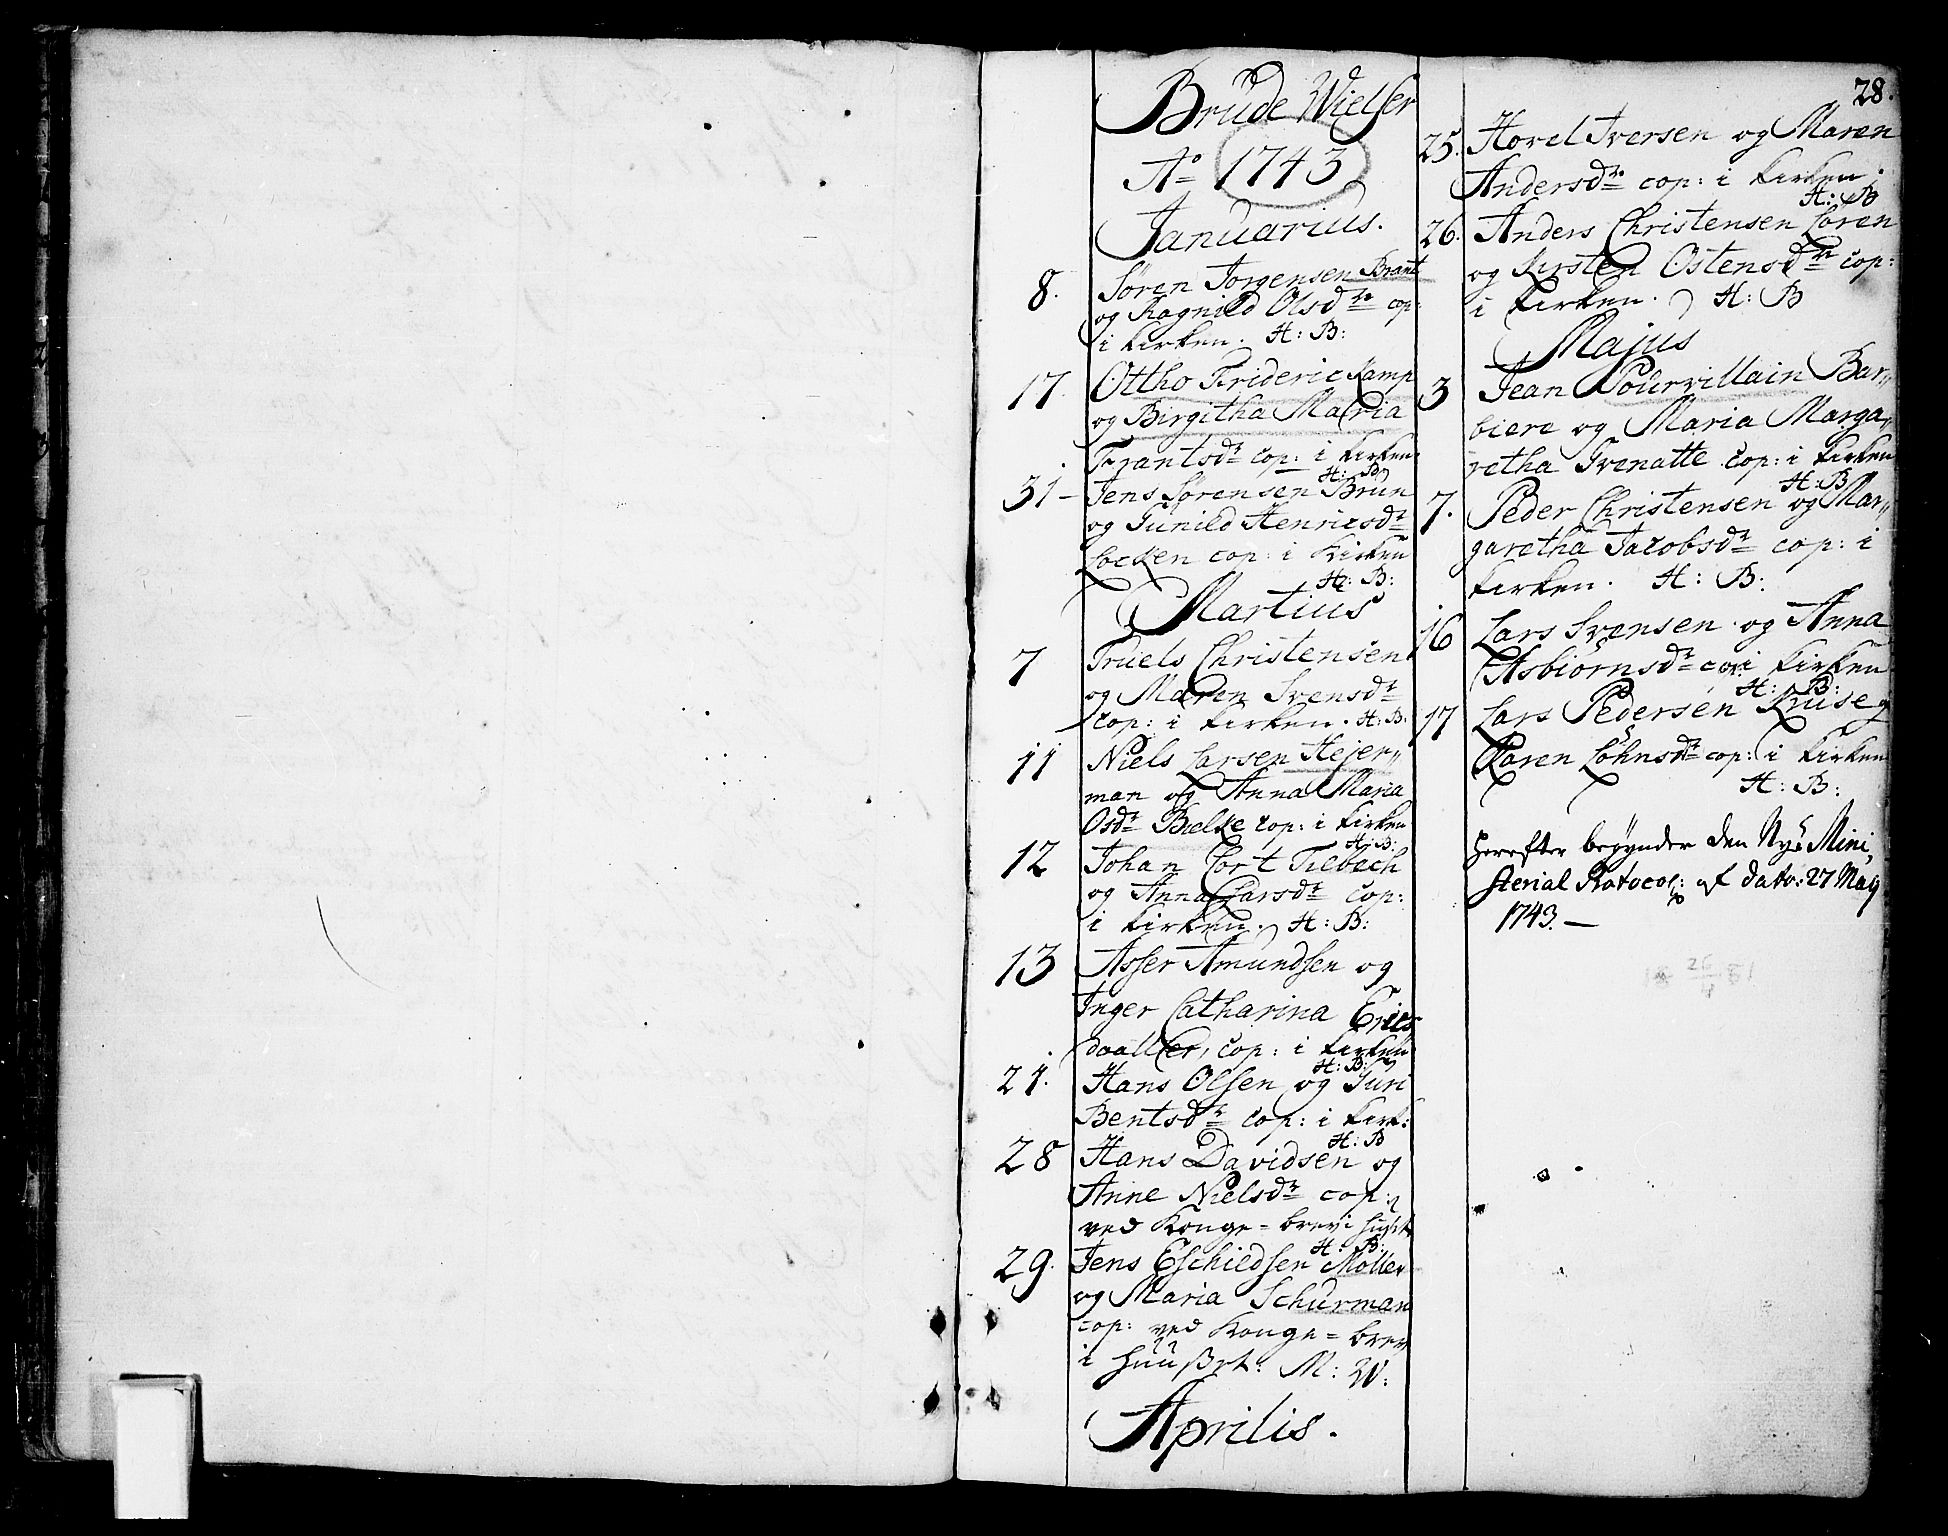 Brude Wielser
Ao 1743
Januarius.
8. Søren Jorgensen Brant
og Ragnild Olsdtr cop:
i kirken. H: B:
17 Ottho Frideric Kamp
og Birgitha Maria
Frantsdtr cop: i kirken
H: B
31 - Jens Sørensen Brun
og Gunild Henricsdtr
Locken cop: i kirken
H: B:
Martius
7 Truels Christensen
og Maren Svensdtr
cop: i kirken. H: B:
11 Niels Larsen Hejer„
man og Anna Maria
Osdtr Bielke cop: i kirken
H: B:
12 Johan Cort Tilbech
og Anna Larsdtr cop:
i kirken. H: B:
13 Asser Amundsen og
Inger Catharina Erics
daatter, cop: i kirken
H: B:
21. Hans Olsen og Guri
Bentsdtr cop: i kirk:
H: B
28 Hans Davidsen og
Anne Nielsdtr cop:
ved Konge=brev i huset
H: B:
29. Jens Eschildsen Møller
og Maria Schurman
cop: ved Konge=brev
i huuset: M: W:
Aprilis.
28.
25. Hovel Iversen og Maren
Andersdtr cop: i kirken.
H: B
26. Anders Christensen Loren
og Kirsten Ostensdtr cop:
i kirken. H: B
Majus
3 Jean Pourvillain Bar„
biere og Maria Marga„
retha Ivenatte cop: i kirken
H: B
7. Peder Christensen og Mar„
garetha Jacobsdtr cop: i
kirken. H: B:
16 Lars Svensen og Anna
Asbiørnsdtr cop: i kirken
H: B:
17 Lars Pedersen Kruse og
Karen Lohnsdtr cop: i kirken
H: B:
Herefter begynder den Nye Mini,
sterial Protocol: af dato: 27 May
1743. —